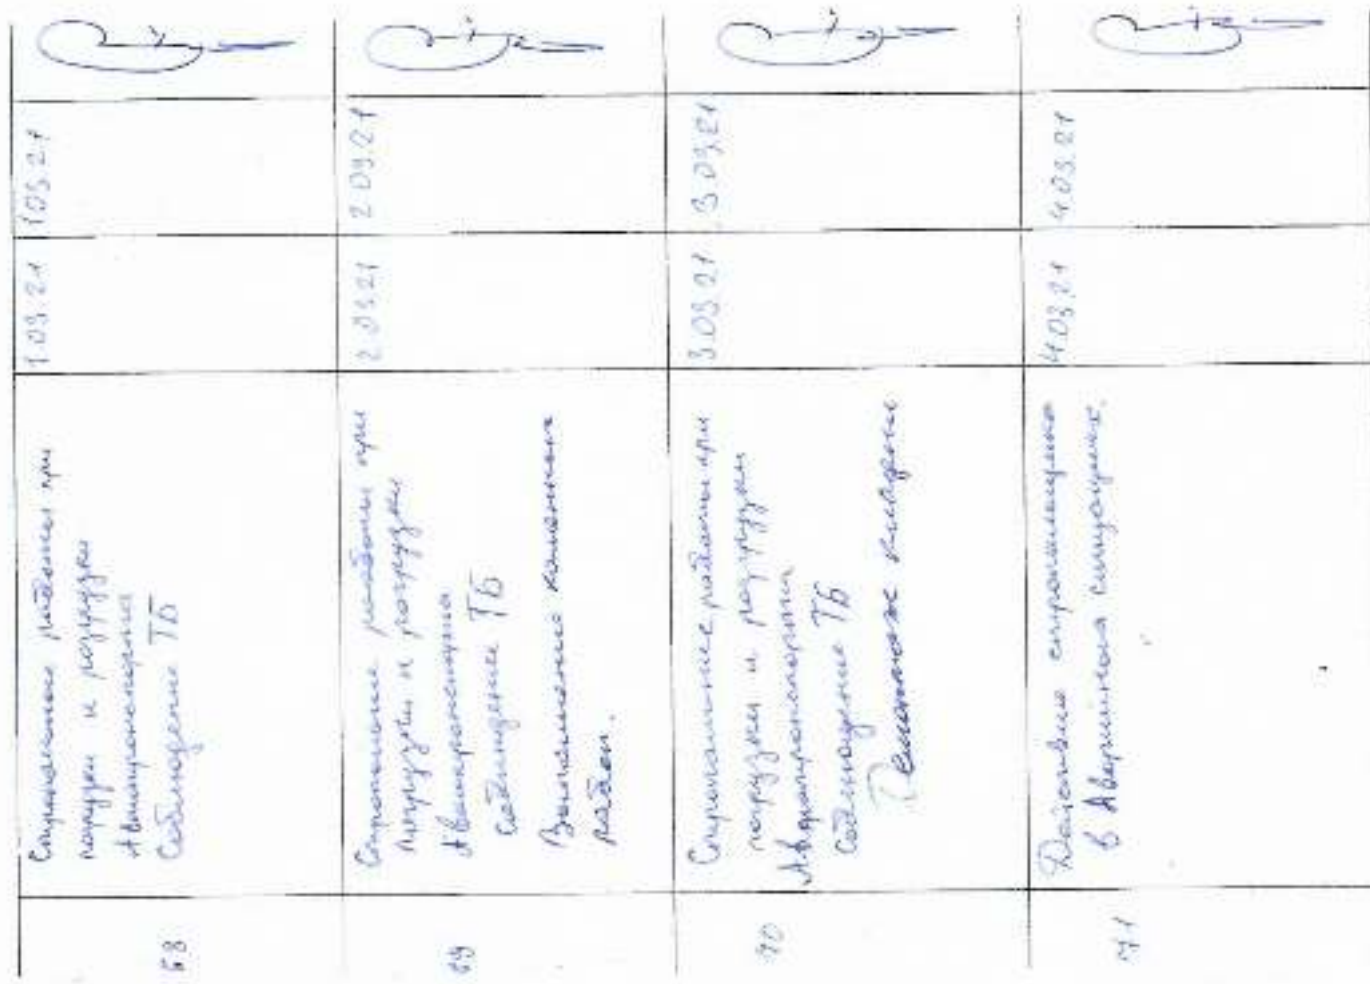 68
Стропальные работы при
погрузки и розгрузки
Автотранспорта
Соблюдение ТБ
1.03.21
1.03.21
69
Стропальные работы при
погрузки и разгрузки
Автотранспорта
Соблюдение ТБ
Выполнение
работ.
2.03.21
2.03.21
70
Стропальные работы при
погрузки и разгрузки
Автотранспорта
Соблюдение ТБ
3.03.21
3.03.21
71
Действие стропальщика
в Аварийных ситуациях.
4.03.21
4.03.21